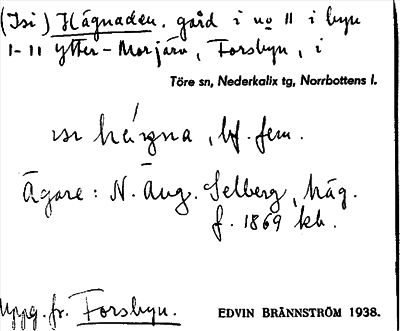 (Isi) Hägnaden, gård i no 11 i byn
1-11 Ytter-Morjärv, Forsbyn, i
Töre sn, Nederkalix tg, Norrbottens l.
hägna, bf. fem.
Ägare: N. Aug. Selberg, häg.
f. 1869 kb.
Uppg. fr. Forsbyn.
EDVIN BRÄNNSTRÖM 1938.